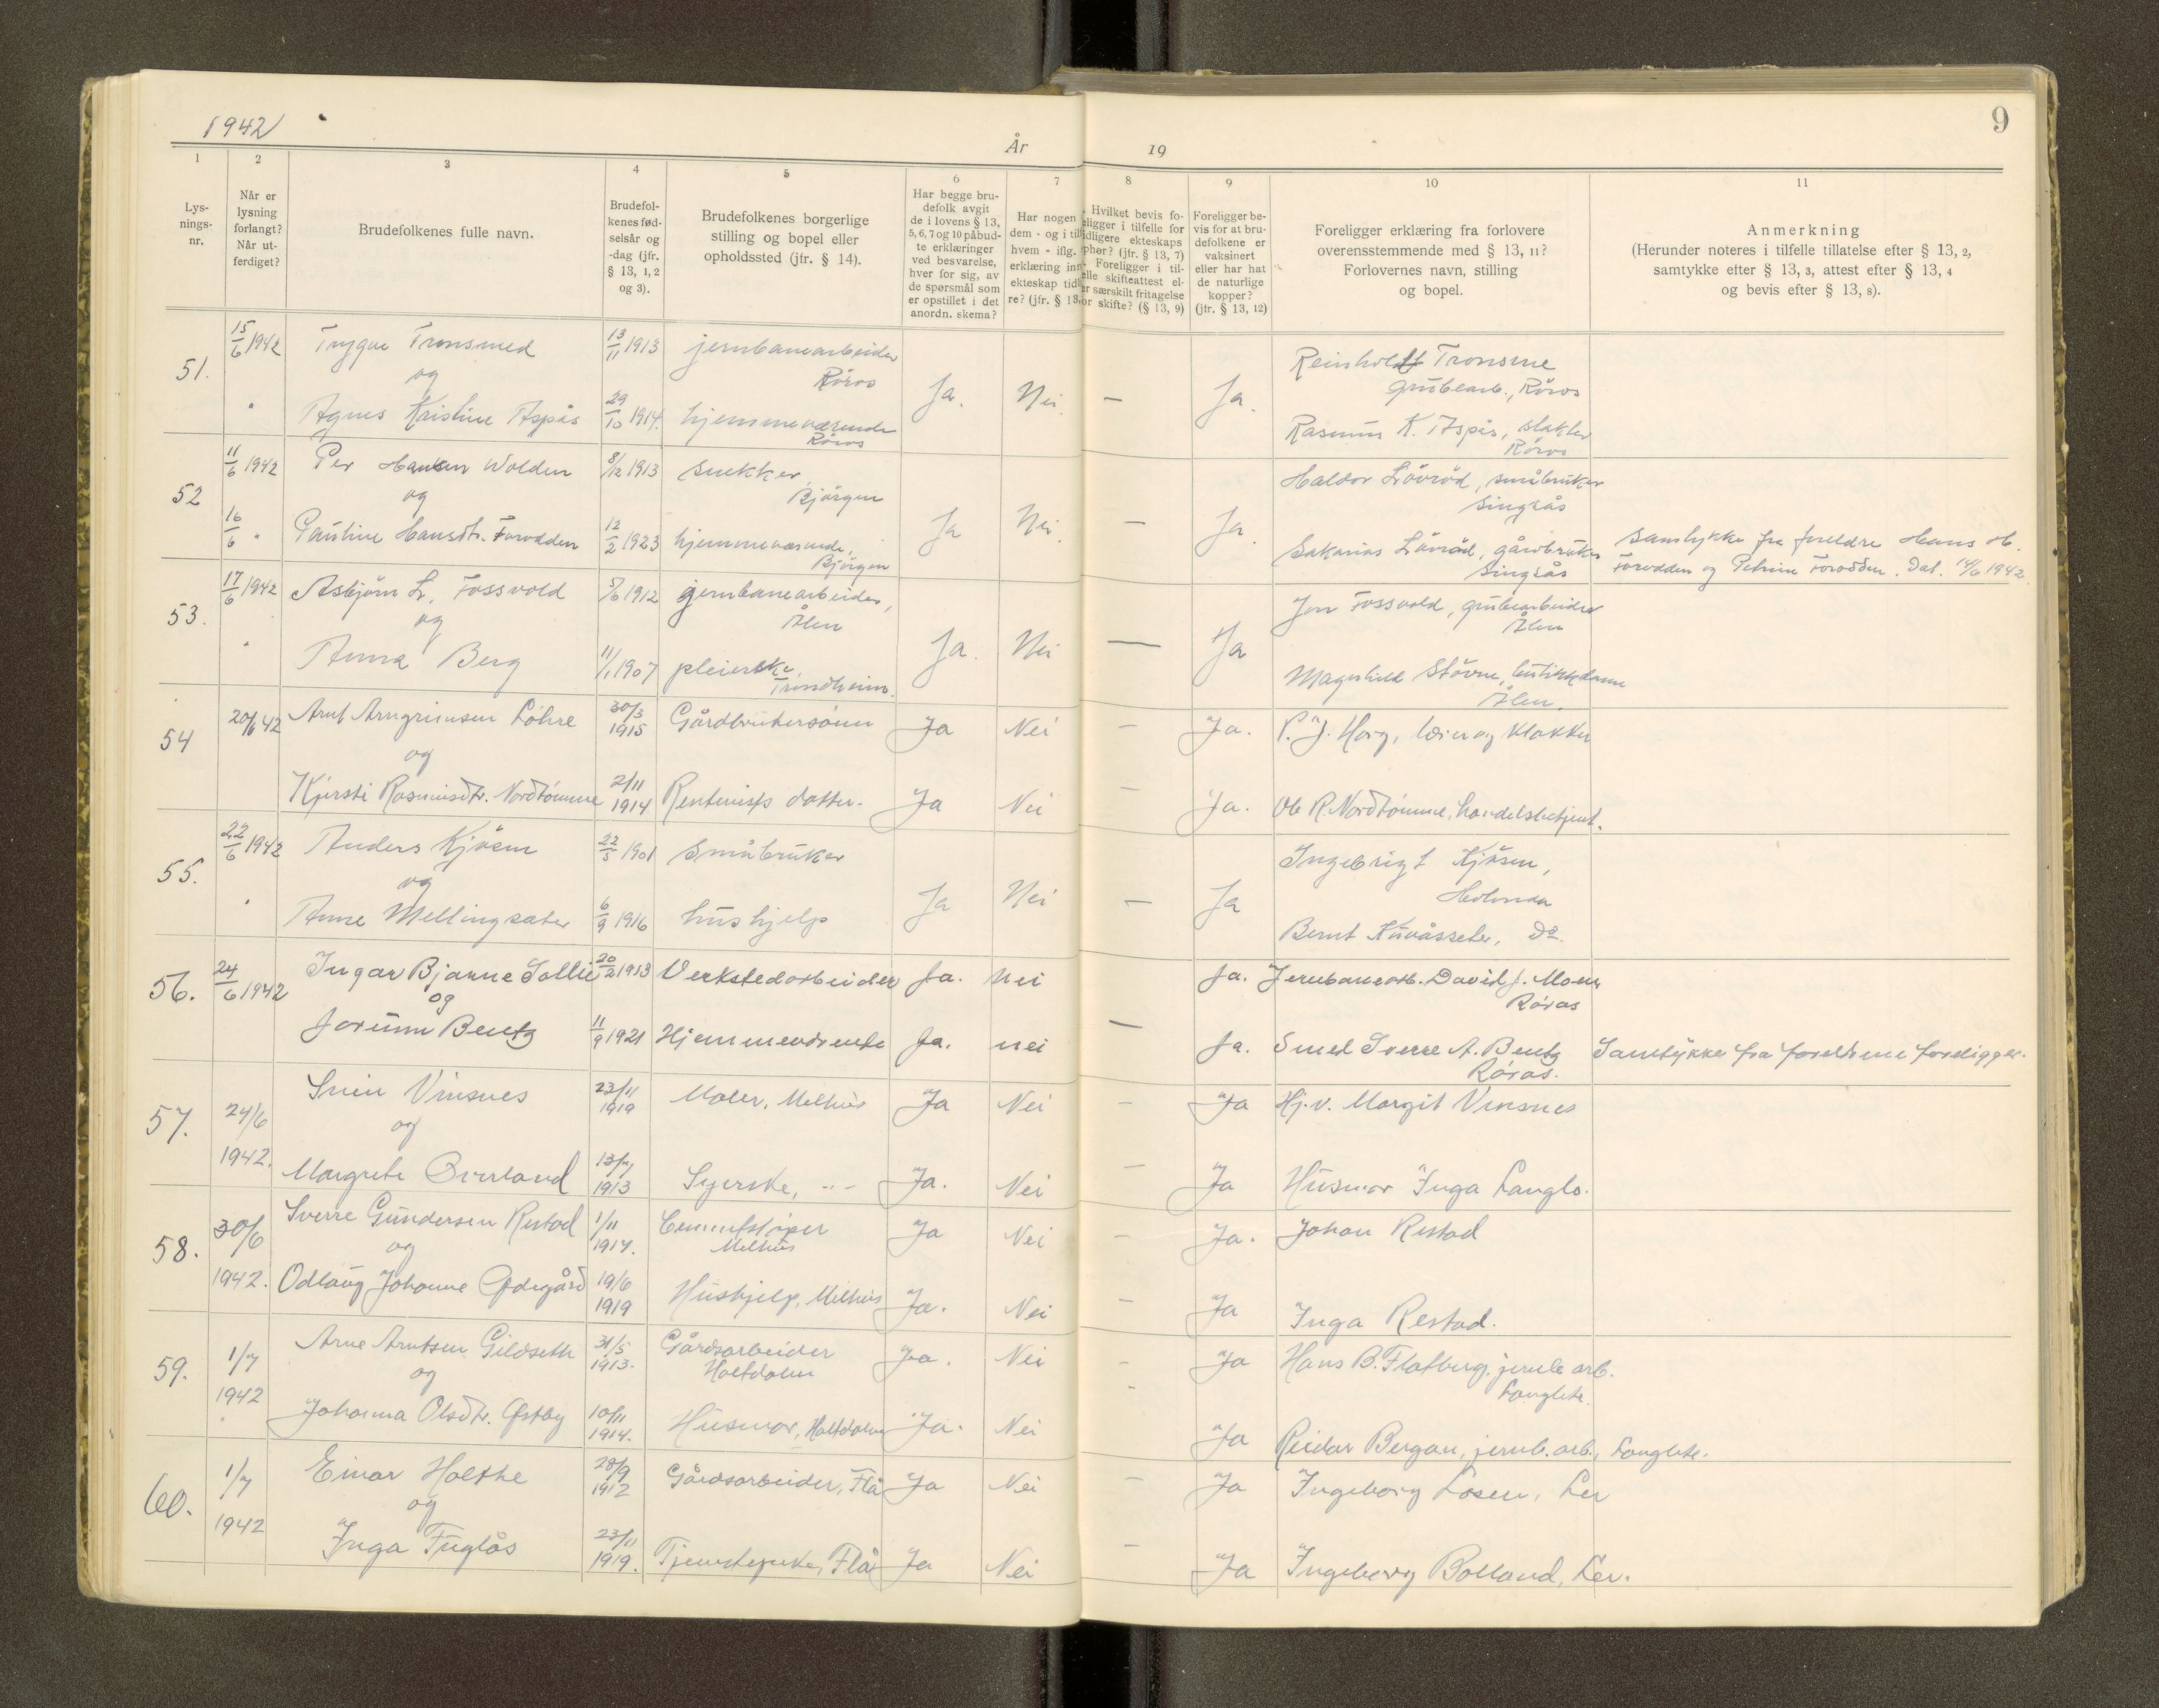 1942
År
19
9
1
2
3
4
5
6
7
8
9
10
11
Lys-
nings-
nr.
Når er
lysning
forlangt?
Når ut-
ferdiget?
Brudefolkenes fulle navn.
Brudefol-
kenes fød-
selsår og
-dag (jfr.
§ 13, 1, 2
og 3).
Brudefolkenes borgerlige
stilling og bopel eller
opholdssted (jfr. § 14).
Har begge bru-
defolk avgit
de i lovens § 13,
5, 6, 7 og 10 påbud-
te erklæringer
ved besvarelse,
hver for sig, av
de spørsmål som
er opstillet i det
anordn. skema?
Har nogen
dem - og i til
hvem - iflg.
erklæring inn
ekteskap tidl
re? (jfr. § 13,
Hvilket bevis fo-
eligger i tilfelle for
idligere ekteskaps
pher? (jfr. § 13, 7)
Foreligger i til-
elle skifteattest el-
er særskilt fritagelse
or skifte? (§ 13, 9)
Foreligger be-
vis for at bru-
defolkene er
vaksinert
eller har hat
de naturlige
kopper?
(jfr. § 13, 12)
Foreligger erklæring fra forlovere
overensstemmende med § 13, 11?
Forlovernes navn, stilling
og bopel.
Anmerkning
(Herunder noteres i tilfelle tillatelse efter § 13, 2,
samtykke efter § 13, 3, attest efter § 13, 4
og bevis efter § 13, 8).
51.
15/6 1942
Trygve Tronsmed
13/11 1913
jernbanearbeider
Röros
og
Ja.
Nei.
—
Ja.
Reinholdt Tronsme
grubearb., Röros
"
Agnes Kristine Aspås
29/10 1914.
hjemmeværende
Röros
Rasmus K. Aspås, slakter
Röros
52
11/6 1942
Per Hansen Wolden
8/12 1913
snekker
Bjørgen
og
Ja
Nei.
—
Ja.
Haldor Lövröd, småbruker
Singsås
16/6 "
Pauline Hansdtr. Forodden
12/2 1923
hjemmeværende,
Bjørgen
Sakarias Lövröd, gårdbruker
Singsås
Samtykke fra foreldre Hans H.
Forodden og Petrine Forodden. Dat. 14/6 1942.
53.
17/6 1942
Asbjørn L. Fossvold
5/6 1912
jernbanearbeider,
Ålen
og
Ja.
Nei
—
Ja
Jon Fossvold, grubearbeider
Ålen
"
Anna Berg
11/1 1907
pleierske,
Trondheim.
Magnhild Støvne, butikkdame
Ålen.
54
20/6 42
Arnt Arngrimsen Løhre
30/3
1915
Gårdbrukersønn
Ja
Nei
—
Ja.
P. J. Horg, lærer og klokker
og
Kjersti Rasmusdtr. Nordtømme
2/11
1914
Rentenists datter.
Ja
Nei
—
Ja.
Ole R. Nordtømme, handelsbetjent.
55.
22/6 1942
Anders Kjösen
22/5 1901
Småbruker
og
Ja
Nei
—
Ja
Ingebrigt Kjösen,
Hölonda
"
Anne Mellingsæter
6/9 1916
hushjelp
Bernt Kuvåsseter, Do.
56.
24/6 1942
Ingar Bjarne Sollie
20/2 1913
Verkstedarbeider
Ja.
Nei
Ja.
Jernbanearb. David J. Moen
Röros
og
—
Jorunn Bentz
11/9 1921
Hjemmeværende
Ja.
nei
Ja.
Smed Sverre A. Bentz
Röros.
Samtykke fra foreldrene foreligger.
57.
24/6
1942.
Svein Vinsnes
23/11
1919
Maler, Melhus
Ja
Nei
—
Ja
Hj.v. Margit Vinsnes
og
Margrete Överland
13/7
1913
Syerske, -"-
Ja.
Nei
—
Ja
Husmor Inga Langlo.
58.
30/6
1942.
Sverre Gundersen Restad
1/11
1914.
Cementstøper
Melhus
Ja
Nei
—
Ja.
Johan Restad
og
Odlaug Johanne Ødegård
19/6
1919
Hushjelp, Melhus
Ja.
Nei
—
Ja
Inga Restad.
59.
1/7
1942
Arne Arntsen Gildseth
31/5
1913.
Gårdsarbeider
Holtdalen
Ja.
Nei
—
Ja
Hans B. Flatberg, jernb. arb.
Langlete.
og
Johanna Olsdtr. Østby
10/11
1914.
Husmor, Holtdalen
Ja.
Nei
—
Ja
Reidar Bergan, jernb. arb., Langlete.
60.
1/7
1942
Einar Holthe
28/9
1912
Gårdsarbeider, Flå
Ja
Nei
—
Ja
Ingeborg Losen, Ler
og
Inga Fuglås
23/11
1919.
Tjenestepike, Flå
Ja
Nei
—
Ja
Ingeborg Bolland, Ler.